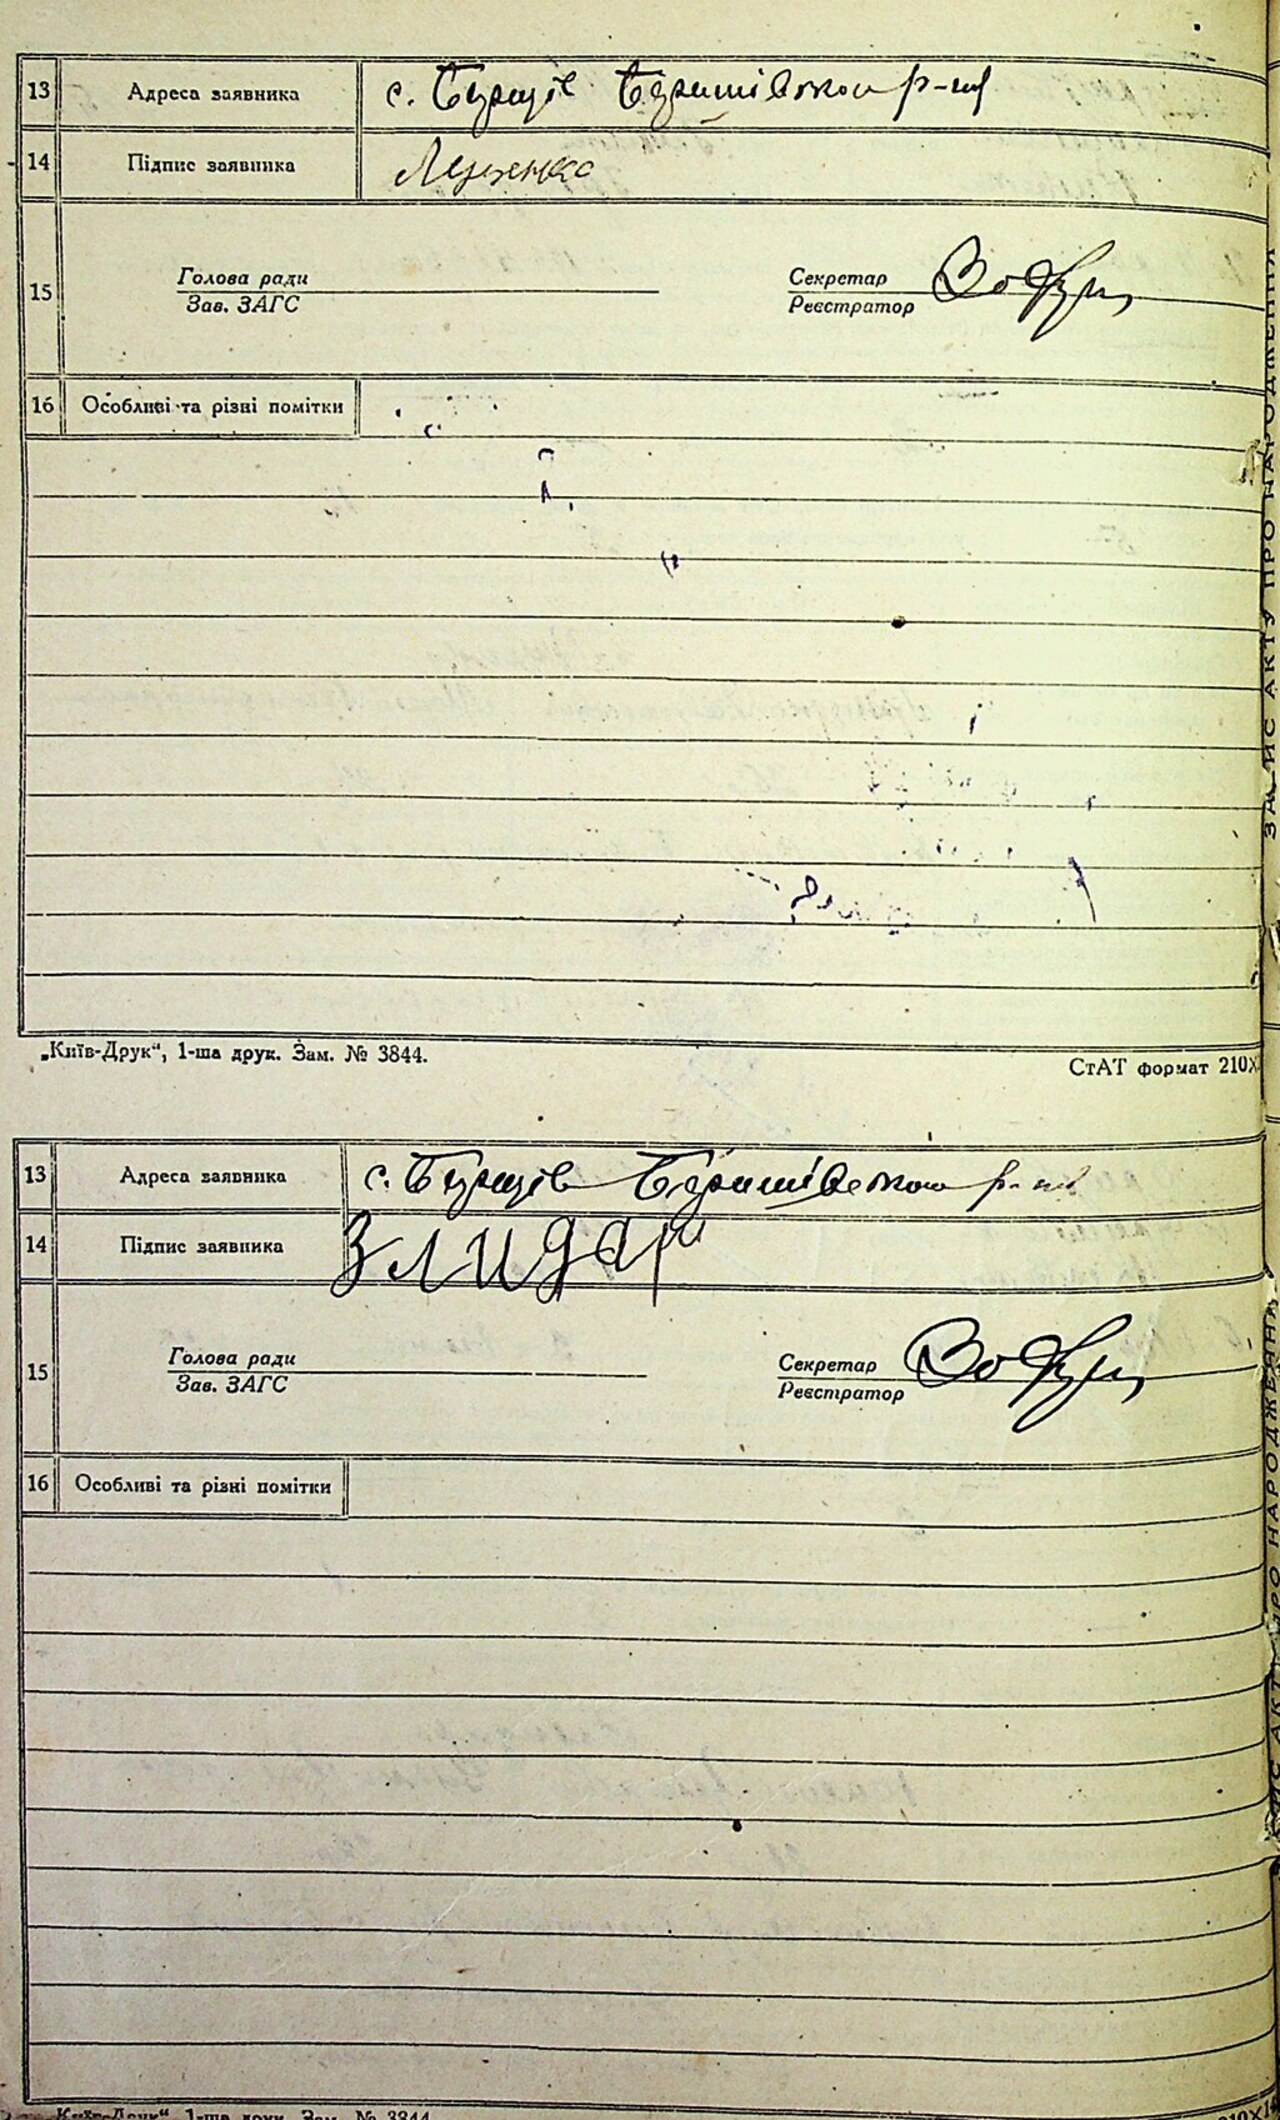 13 Адреса заявника с. Бурщів Баришівсткои р-ну
14 Підпис заявника
15 Голова ради Секретар
Зав. ЗАГС Реєстратор
16 Особливі та різні помітки
„Київ-Друк“, 1-ша друк. Зам. № 3844. СтАТ формат 210X
ЗАПИС АКТУ ПРО НАРОДЖЕННЯ
13 Адреса заявника с. Бурщів Баришівсткои р-ну
14 Підпис заявника Злидар
15 Голова ради Секретар
Зав. ЗАГС Реєстратор
16 Особливі та різні помітки
АКТУ ПРО НАРОДЖЕННЯ
„Київ-Друк“, 1-ша друк. Зам. № 3844